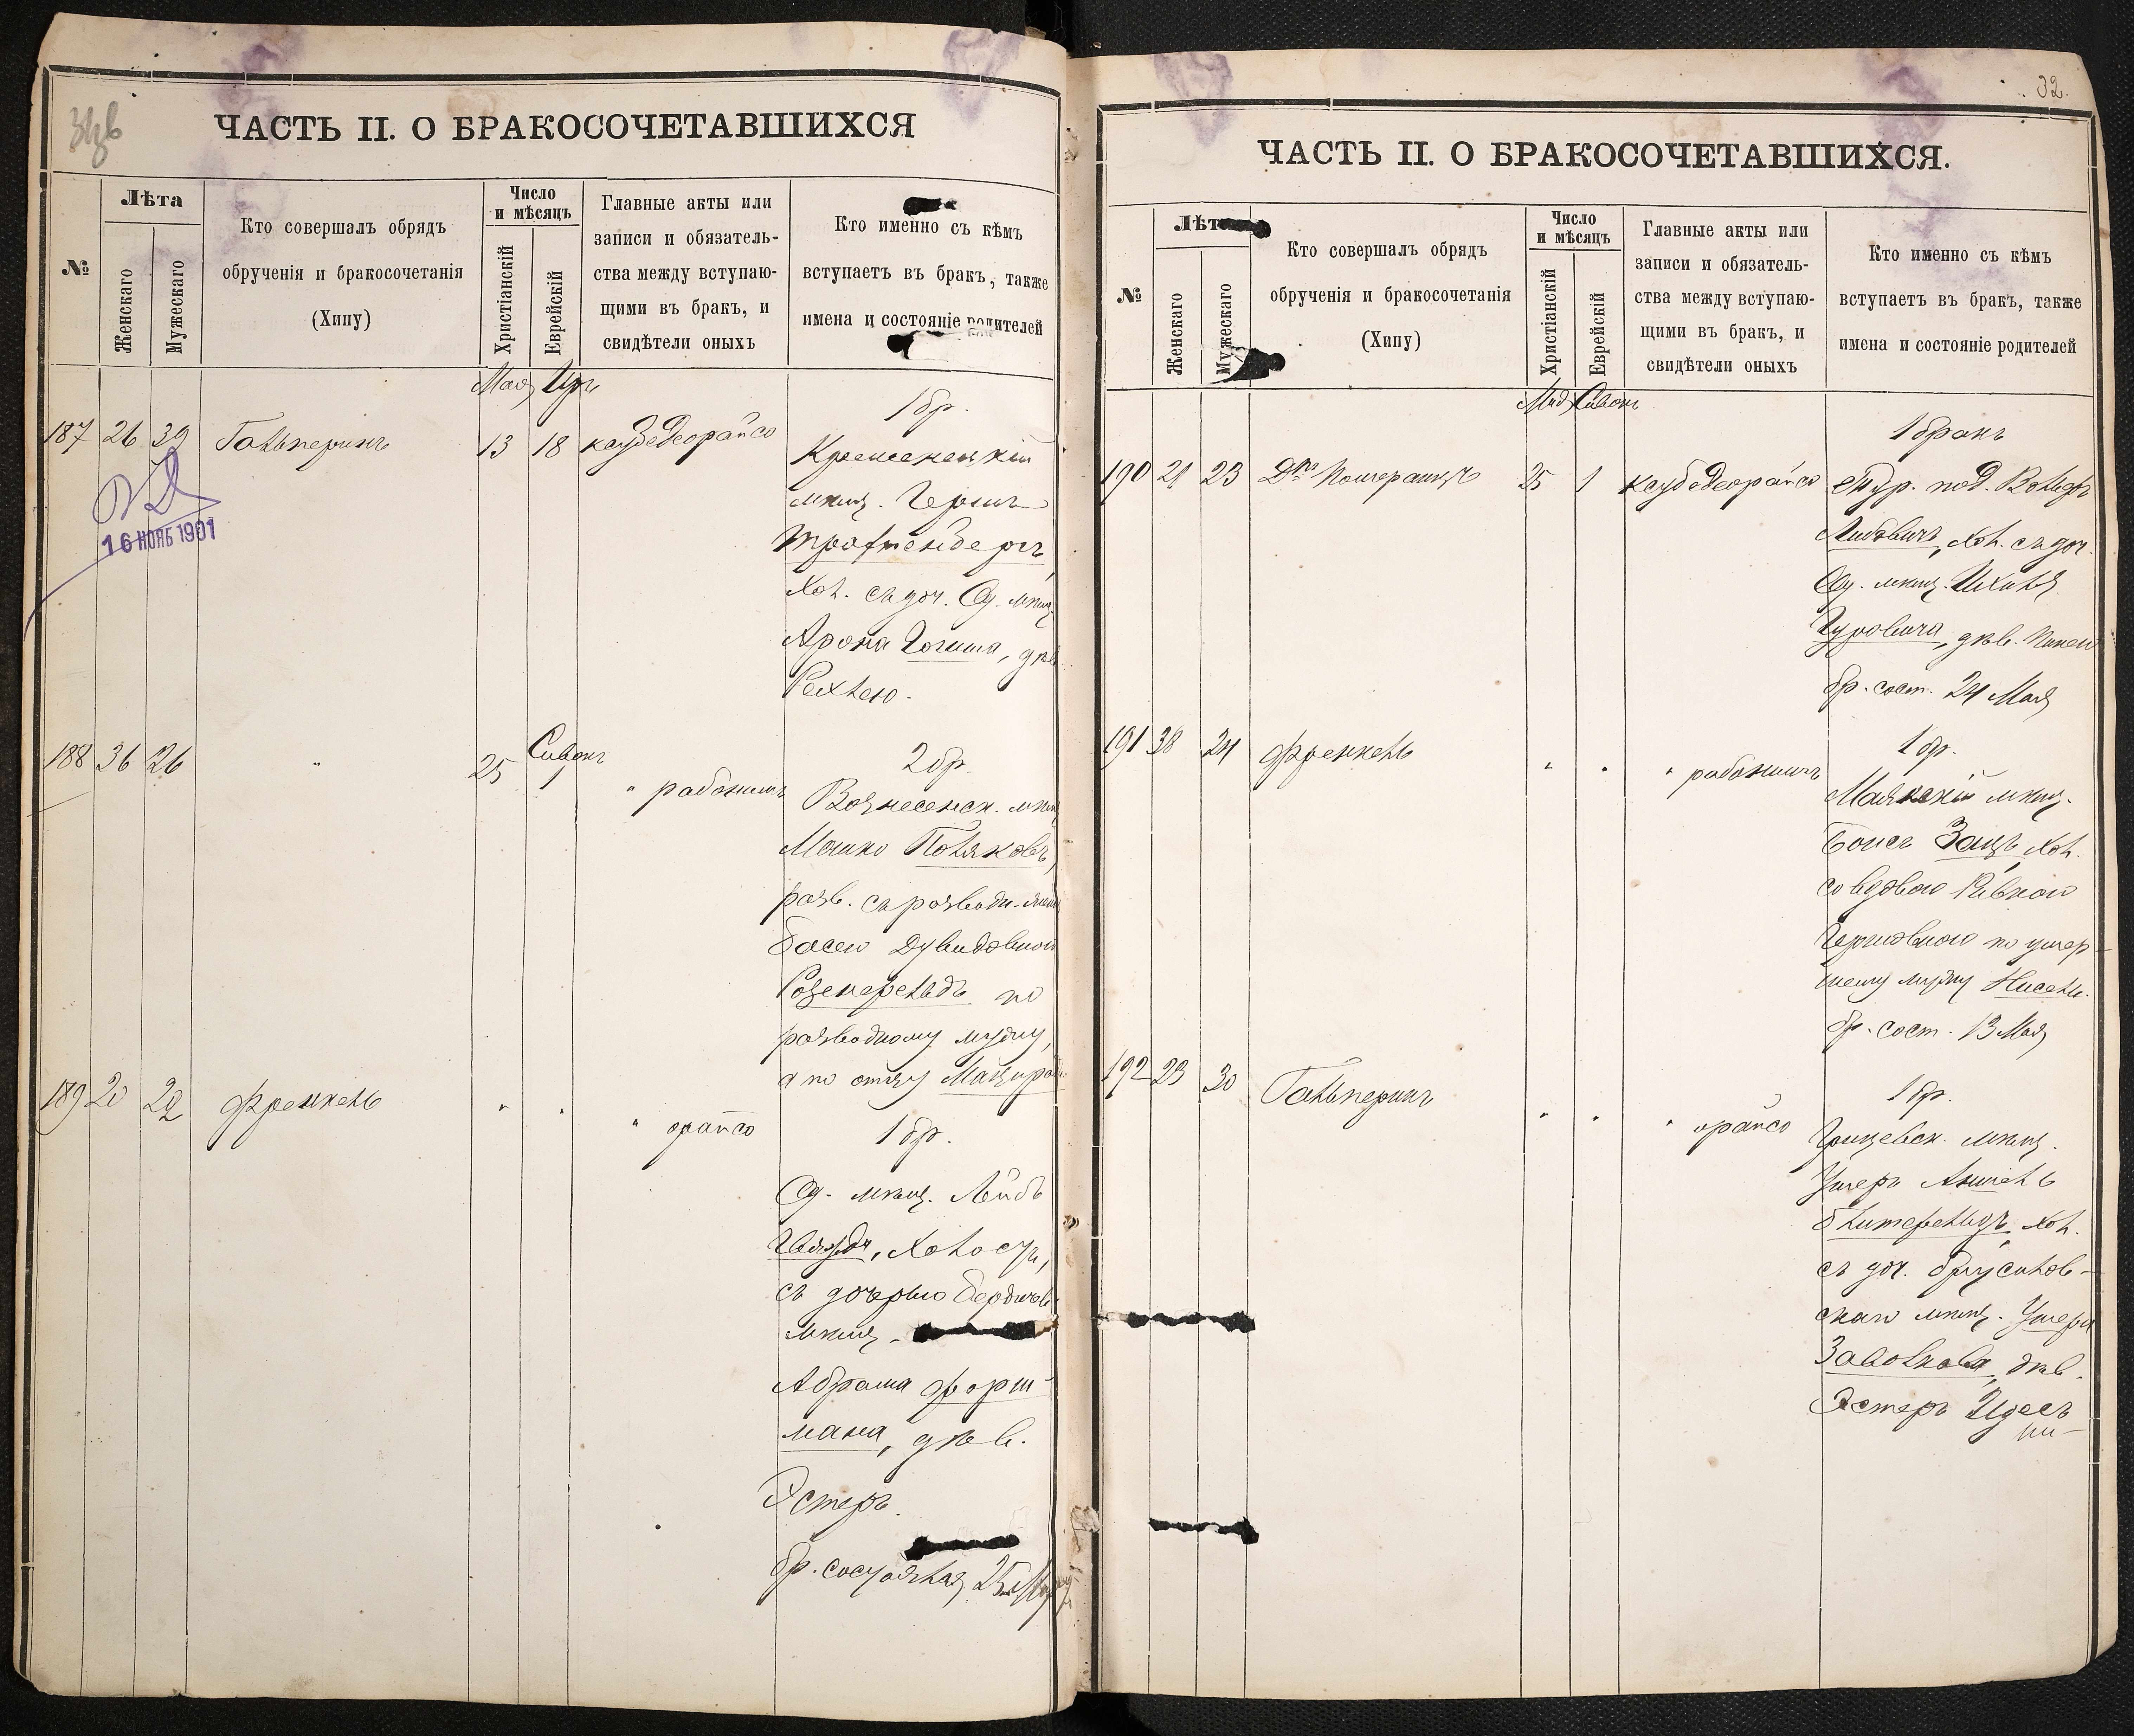 ЧАСТЬ II. О БРАКОСОЧЕТАВШИХСЯ
№
Лѣта
Женскаго
Мужескаго
Кто совершалъ обрядъ
обрученія и бракосочетанія
(Хипу)
Число
и мѣсяцъ
Христіанскій
Еврейскій
Главные акты или
записи и обязатель-
ства между вступаю-
щими въ бракъ, и
свидѣтели оныхъ
Кто именно съ кѣмъ
вступаетъ въ бракъ, также
имена и состояніе родителей
Мая
187 26 39 Гальперинъ 13 18
16 НОЯБ 1901
1 бр.
Кременецкій
мѣщ. Гершъ
Трахтенбергъ,
хол. съ доч. Од. мѣщ.
Арона
Рейхлею.
188 36 26 " 25 Сиванъ 1 "
2 бр.
Вознесенск. мѣщ
Мошко Поляковъ,
разв. съ
Басею Дувидовною
Розенфельдъ по
разводному мужу,
а по отцу
189 20 29 Френкель " " "
1 бр.
Од. мѣщ. Лейбъ
холостъ,
съ дочерью Бердичев.
мѣщ.
Абрама Форш-
мана, дѣв.
Эстеръ.
бр. состоялся 25
32.
ЧАСТЬ II. О БРАКОСОЧЕТАВШИХСЯ.
№
Лѣт
Женскаго
Мужескаго
Кто совершалъ обрядъ
обрученія и бракосочетанія
(Хипу)
Число
и мѣсяцъ
Христіанскій
Еврейскій
Главные акты или
записи и обязатель-
ства между вступаю-
щими въ бракъ, и
свидѣтели оныхъ
Кто именно съ кѣмъ
вступаетъ въ бракъ, также
имена и состояніе родителей
Мая Сиванъ
1 бракъ
190 21 23 Померанцъ 25 1
Тур. под. Вольфъ
хол. съ доч.
Од. мѣщ. Ихиля
Гуровича, дѣв.
бр. сост. 24 Мая
191 38 24 Френкель " " "
1 бр.
Маякскій мѣщ.
Зацъ хол.
со вдовою Ривкою
Гершовною по умер-
шему мужу
бр. сост. 13 Мая
192 23 30 Гальперинъ " " "
1 бр.
мѣщ.
Ушеръ Аншель
хол.
съ доч. Брусилов-
скаго мѣщ. Ушера
дѣв.
Эстеръ Идесъ